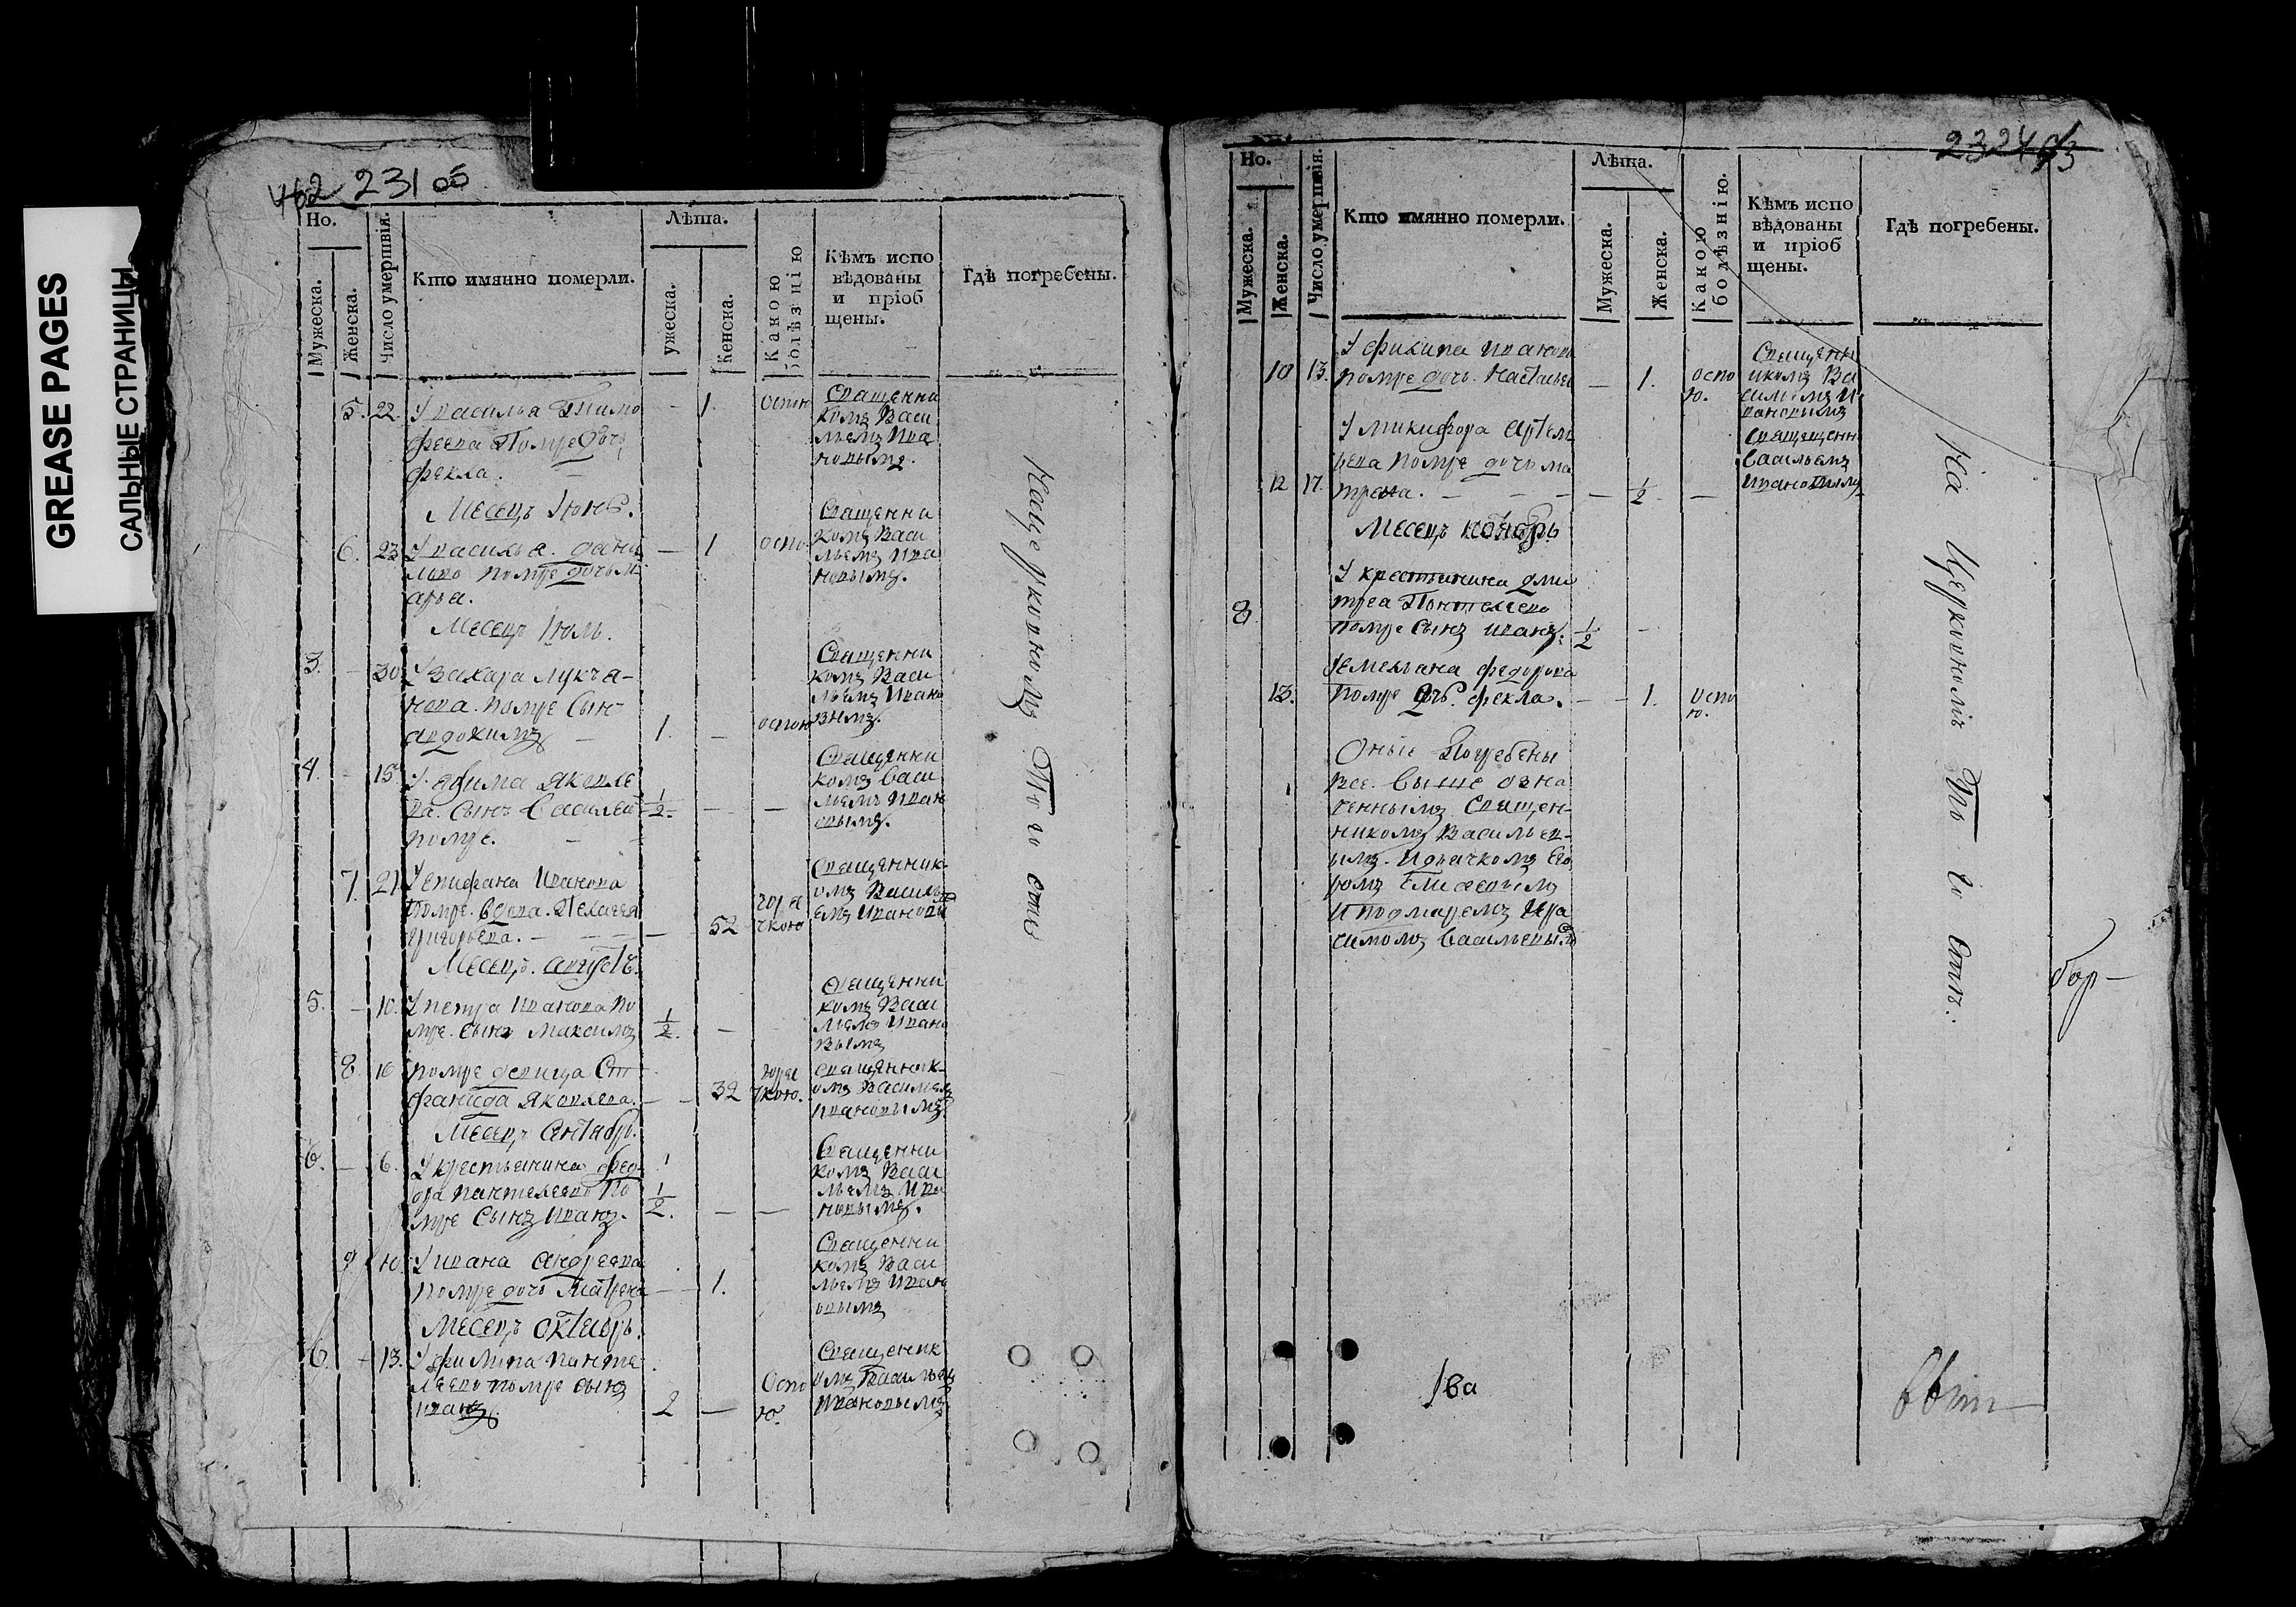 GREASE PAGES
САЛЬНЫЕ СТРАНИЦЫ
462 231 об
Но.
Мужеска.
Женска.
Число умертвія.
Кто имянно померли.
Лѣта.
ужеска.
Женска.
Какою
болѣзнію
Кѣмъ испо
вѣдованы
и пріоб
щены.
Гдѣ погребены.
5. 22. У васильа Тимо
феева Помре дочь
фекла.
1. оспою
Священни
комъ Васи
льемъ Ива
новымъ.
Месецъ Июнь.
6. 23 У васильа. дани
лова помре дочь м
арьа.
1 оспо
Священни
комъ Васи
льемъ Ива
новымъ.
Месецъ Июль.
3. 30 У Захара лукьа-
нова. помре Сын
авдокимъ
1. оспою
Священни
комъ Васи
льемъ Ивано
вымъ.
4. 15 У ефима Яковле
ва. Сынъ Василей
помре.
1/2
Священни
комъ Васи
льемъ Иван
овымъ.
7. 21 У епифана Иванова
Помре. вдова. Пелагея
григорьева.
52 горя
чкою
Священник
омъ Василь
емъ Иванови
Месецъ. августъ.
5. 10. У петра Иванова по
мре. сынъ Максимъ
1/2.
Священни
комъ Васи
льемъ Ивано
вымъ
8. 16 помре девица Сте
фанида Яковлева.
32 горя
чкою.
священник
омъ Васильемъ
Ивановымъ.
Месецъ Сентябрь.
6. 6. У крестьенина фед
ора пантелеева по
мре Сынъ Иванъ.
1/2.
Священни
комъ Васи
льемъ Ива
новымъ.
9 10. У ивана андреева
помре дочь Матрена
1.
Священни
комъ Васи
льемъ Иван
овымъ
Месецъ октебрь.
6. 13. У филипа панте
леева помре сынъ
иванъ
2 Оспо
ю.
Священник
омъ Васильемъ
Ивановымъ
На церковномъ То го сть
232 463
Но.
Мужеска.
Женска.
Число умертвія.
Кто имянно померли.
Лѣта.
Мужеска.
Женска.
Какою
болѣзнію.
Кѣмъ испо
вѣдованы
и пріоб
щены.
Гдѣ погребены.
У филипа иванова
10 13. помре дочь. настасья
1. оспо
ю.
Священн
икомъ Ва
сильемъ И
вановымъ
У микифора Артем
ьева помре дочь ма
12 17. трена.
1/2
Священн
Васильемъ
Ивановымъ
Месецъ ноябрь
У крестьянина дми
треа Понтелеева
8 помре Сынъ иванъ. 1/2
Уемельана федорова
13. Помре дочь. фекла. 1. Оспо
ю.
Оные Погребены
все. выше озна
ченнымъ Священ-
никомъ Васильев-
ымъ. Идьачкомъ Его
ромъ
И
Васильевым
На Церковномъ
бор-